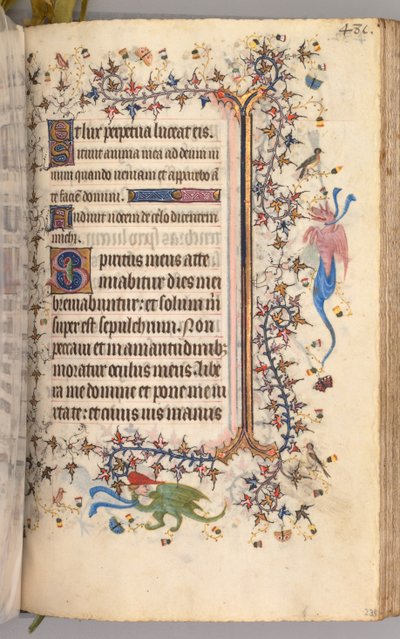 436.
Et lux perpetua luceat eis.
Sitivit anima mea ad deum vi
vum quando veniam et apparebo ā
te faciē domini.
Audivi vocem de celo dicentem
michi.
Spiritus meus atte
nuabitur dies mei
breviabuntur: et solum m
super est sepulchrum. Non
peccavi et in amaritudinib
moratur oculus meus. Libe
ra me domine et pone me iu
xta te: et cuius vis manus